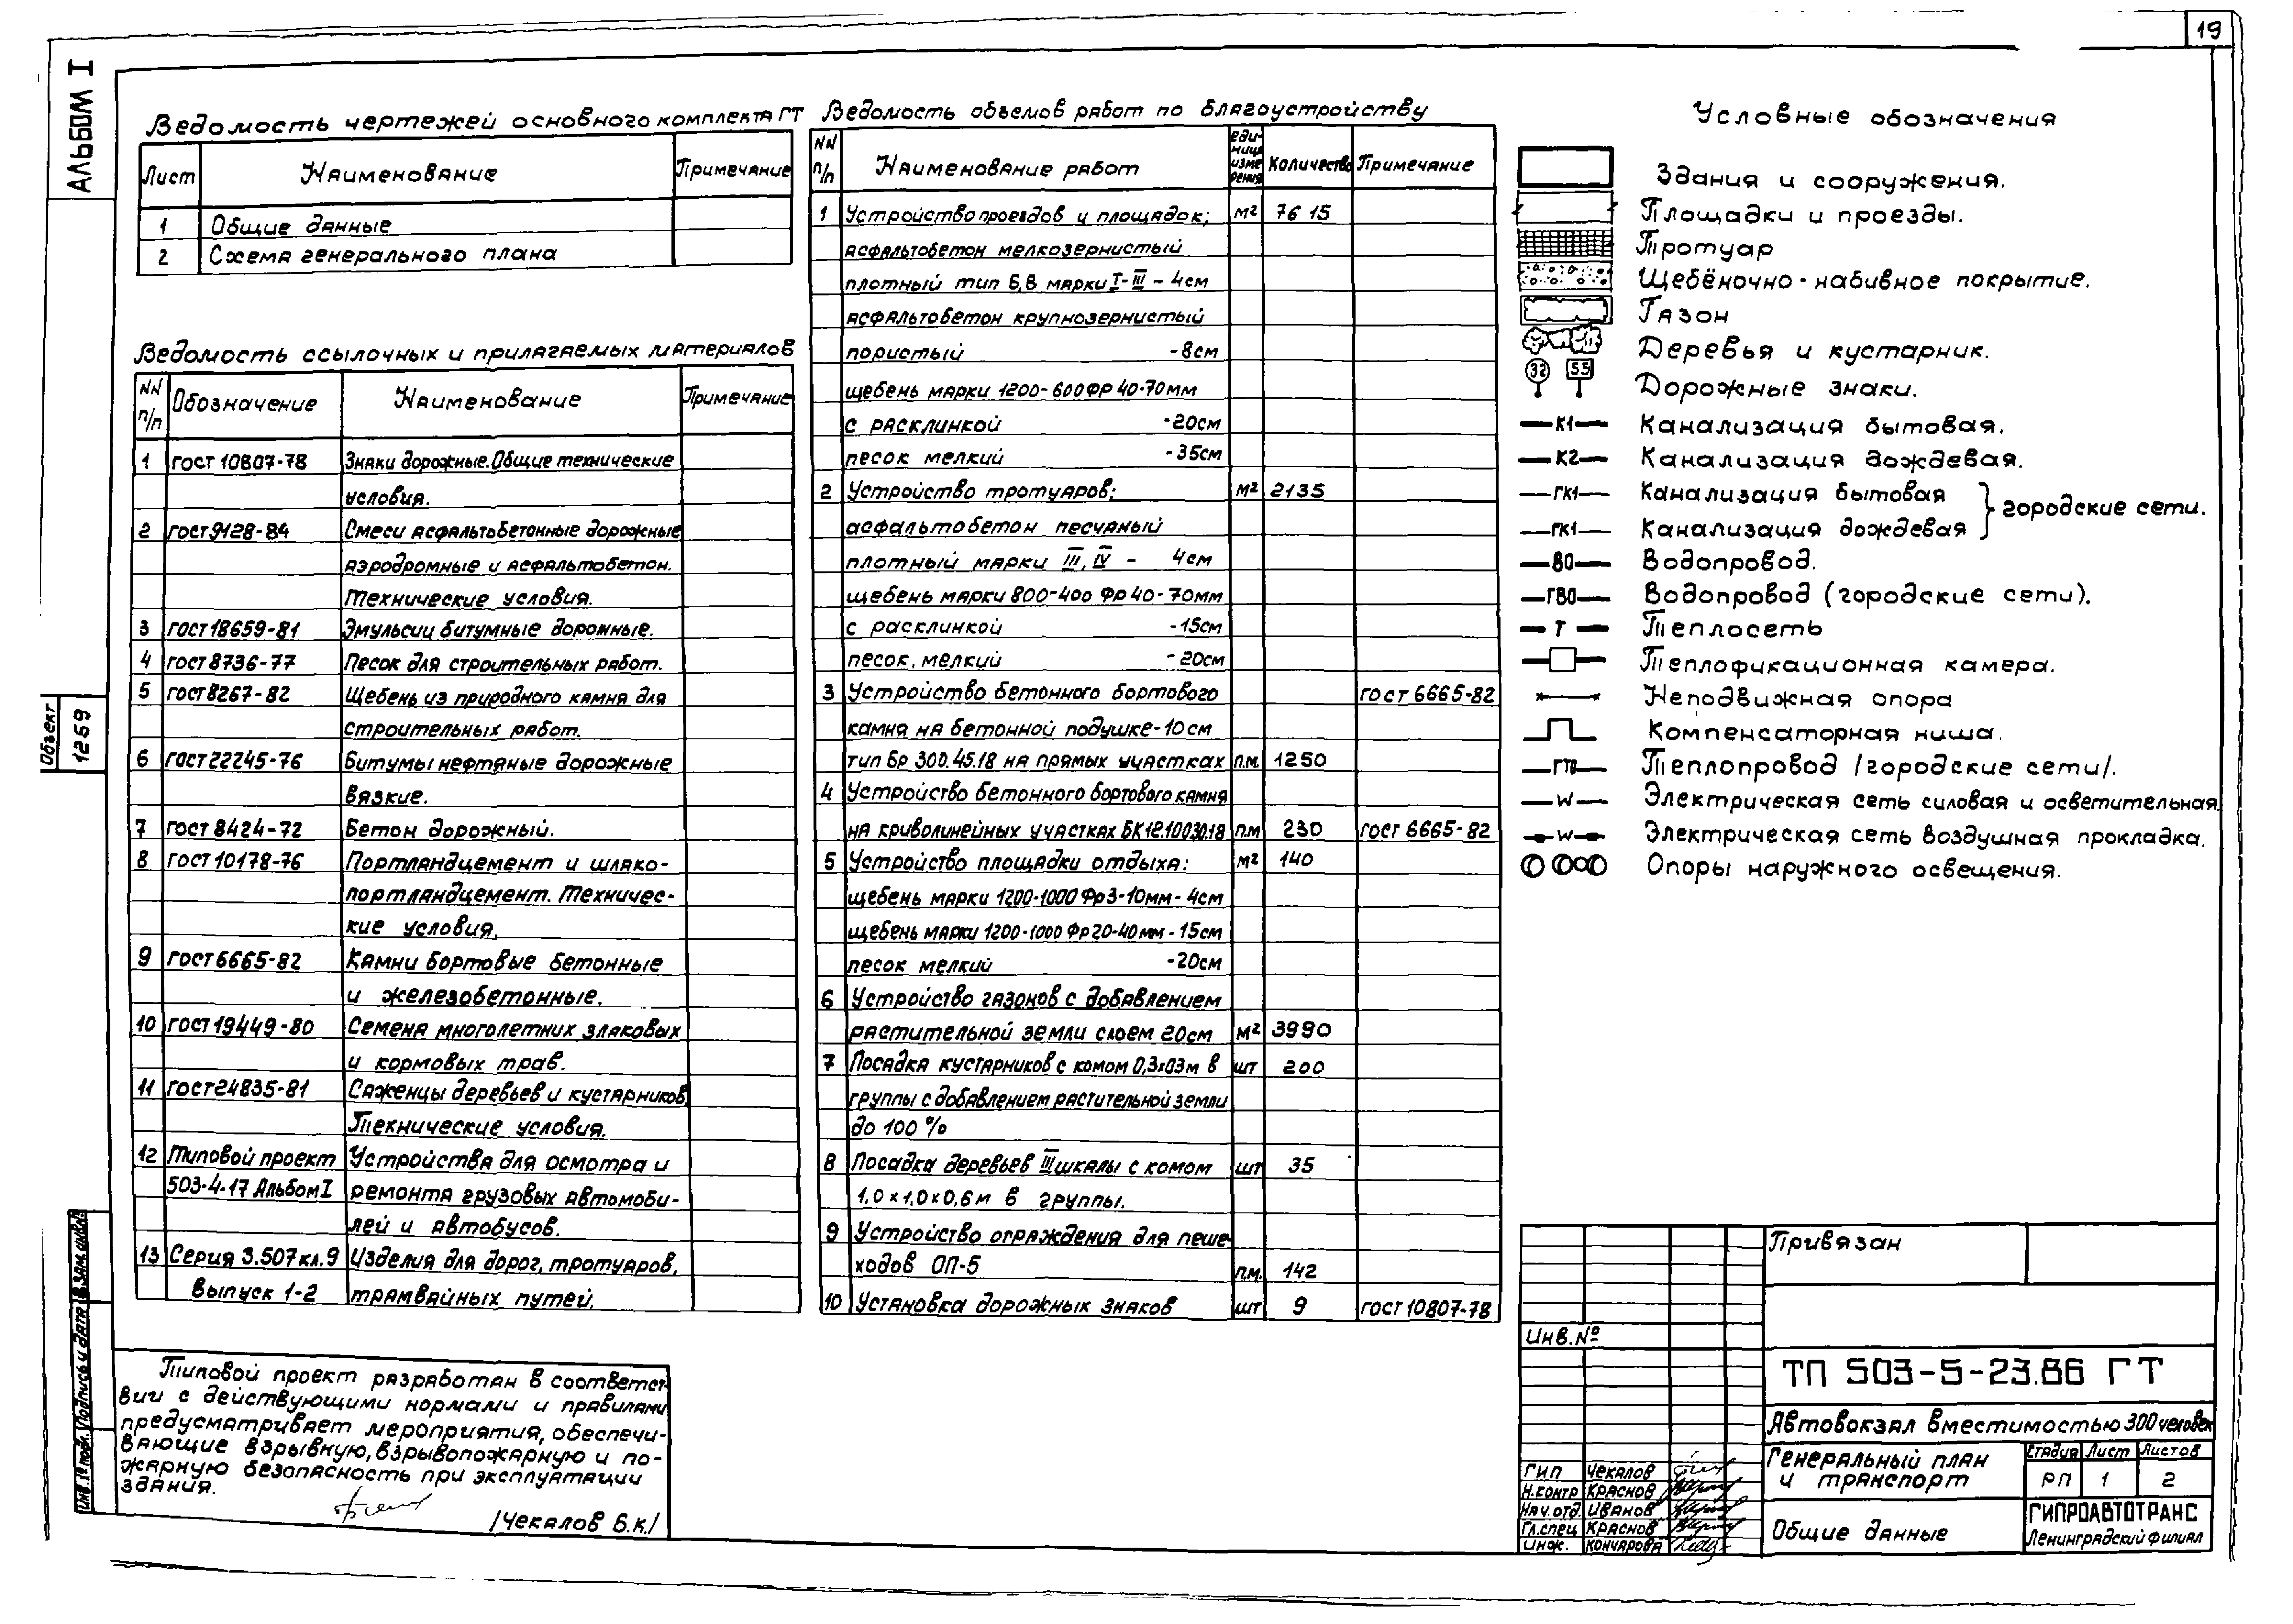 19
АЛЬБОМ I
Ведомость чертежей основного комплекта ГТ
Лист Наименование Примечание
1 Общие данные
2 Схема генерального плана
Ведомость ссылочных и прилагаемых материалов
NN п/п Обозначение Наименование Примечание
1 ГОСТ 10807-78 Знаки дорожные. Общие технические
условия.
2 ГОСТ 9128-84 Смеси асфальтобетонные дорожные
аэродромные и асфальтобетон.
Технические условия.
3 ГОСТ 18659-81 Эмульсии битумные дорожные.
4 ГОСТ 8736-77 Песок для строительных работ.
5 ГОСТ 8267-82 Щебень из природного камня для
строительных работ.
6 ГОСТ 22245-76 Битумы нефтяные дорожные
вязкие.
7 ГОСТ 8424-72 Бетон дорожный.
8 ГОСТ 10178-76 Портландцемент и шлако-
портландцемент. Техничес-
кие условия.
9 ГОСТ 6665-82 Камни бортовые бетонные
и железобетонные.
10 ГОСТ 19449-80 Семена многолетних злаковых
и кормовых трав.
11 ГОСТ 24835-81 Саженцы деревьев и кустарников
Технические условия.
12 Типовой проект Устройства для осмотра и
503-4-17 Альбом I ремонта грузовых автомоби-
лей и автобусов.
13 Серия 3.507 кл. 9 Изделия для дорог, тротуаров,
Выпуск 1-2 трамвайных путей.
Ведомость объемов работ по благоустройству
NN п/п Наименование работ еди- ница изме рения Количество Примечание
1 Устройство проездов и площадок; м² 7615
асфальтобетон мелкозернистый
плотный тип Б,В марки I-III - 4см
асфальтобетон крупнозернистый
пористый -8см
щебень марки 1200-600 фр 40-70мм
с расклинкой -20см
песок мелкий -35см
2 Устройство тротуаров: м² 2135
асфальтобетон песчаный
плотный марки III, IV - 4см
щебень марки 800-400 фр 40-70мм
с расклинкой -15см
песок мелкий -20см
3 Устройство бетонного бортового ГОСТ 6665-82
камня на бетонной подушке-10см
тип Бр 300.45.18 на прямых участках п.м. 1250
4 Устройство бетонного бортового камня
на криволинейных участках БК 12.100.30.18 п.м 230 ГОСТ 6665-82
5 Устройство площадки отдыха: м² 140
щебень марки 1200-1000 Фр 3-10мм - 4см
щебень марки 1200-1000 Фр 20-40мм - 15см
песок мелкий -20см
6 Устройство газонов с добавлением
растительной земли слоем 20см м² 3990
7 Посадка кустарников с комом 0,3х03м в шт 200
группы с добавлением растительной земли
до 100 %
8 Посадка деревьев III шкалы с комом шт 35
1,0х1,0х0,6м в группы.
9 Устройство ограждения для пеше-
ходов ОП-5 п.м. 142
10 Установка дорожных знаков шт 9 ГОСТ 10807-78
Условные обозначения
Здания и сооружения.
Площадки и проезды.
Тротуар
Щебёночно-набивное покрытие.
Газон
Деревья и кустарник.
32 55 Дорожные знаки.
К1 Канализация бытовая.
К2 Канализация дождевая.
ГК1 Канализация бытовая
городские сети.
ГК1 Канализация дождевая
ВО Водопровод.
ГВО Водопровод (городские сети).
Т Теплосеть
Теплофикационная камера.
Неподвижная опора
Компенсаторная ниша.
ГТ0 Теплопровод /городские сети/.
W Электрическая сеть силовая и осветительная
W Электрическая сеть воздушная прокладка.
Опоры наружного освещения.
Объект
1259
Взам. инв.№
Подпись и дата
Инв. № подл.
Типовой проект разработан в соответст-
вии с действующими нормами и правилами
предусматривает мероприятия, обеспечи-
вающие взрывную, взрывопожарную и по-
жарную безопасность при эксплуатации
здания.
/Чекалов Б.К./
Привязан
Инв.№
ТП 503-5-23.86 ГТ
Автовокзал вместимостью 300 человек
Генеральный план
и транспорт
Стадия Лист Листов
РП 1 2
ГИП Чекалов
Н.контр Краснов
Нач.отд. Иванов
Гл.спец Краснов
Инж. Кончарова
Общие данные
ГИПРОАВТОТРАНС
Ленинградский филиал